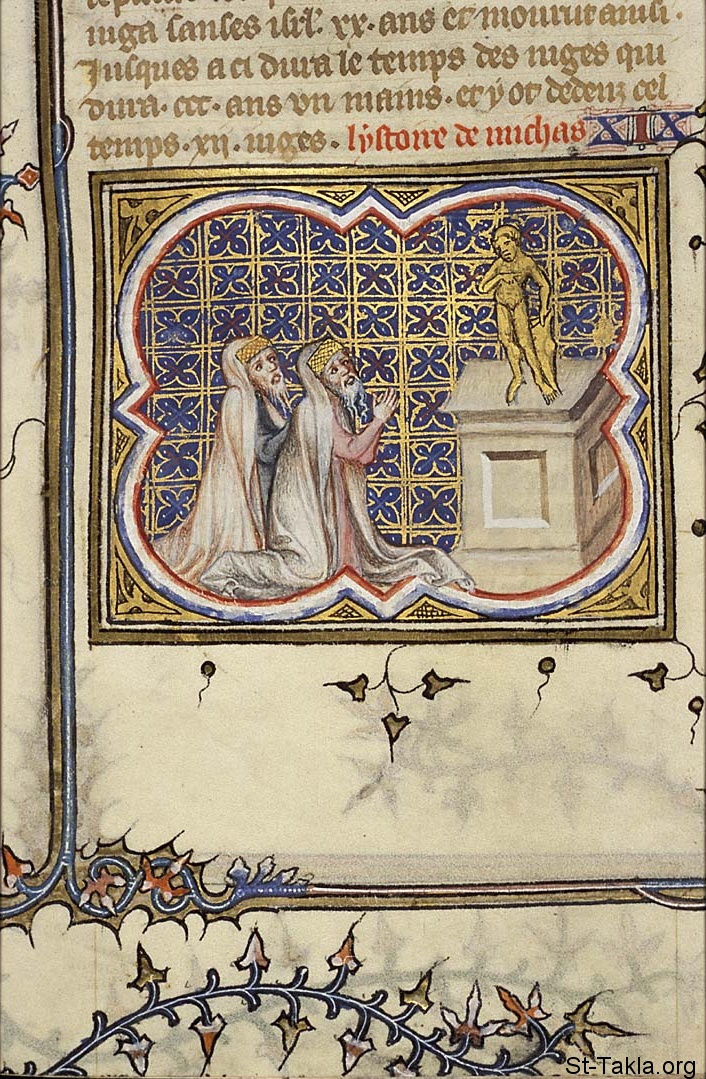 iuga sanses isrl. xx. ans et mourut ainsi.
Jusques a ci dura le temps des iuges qui
dura. ccc. ans vn mains. et y ot dedenz cel
temps. xii. iuges. lystoire de michas XIX
St-Takla.org